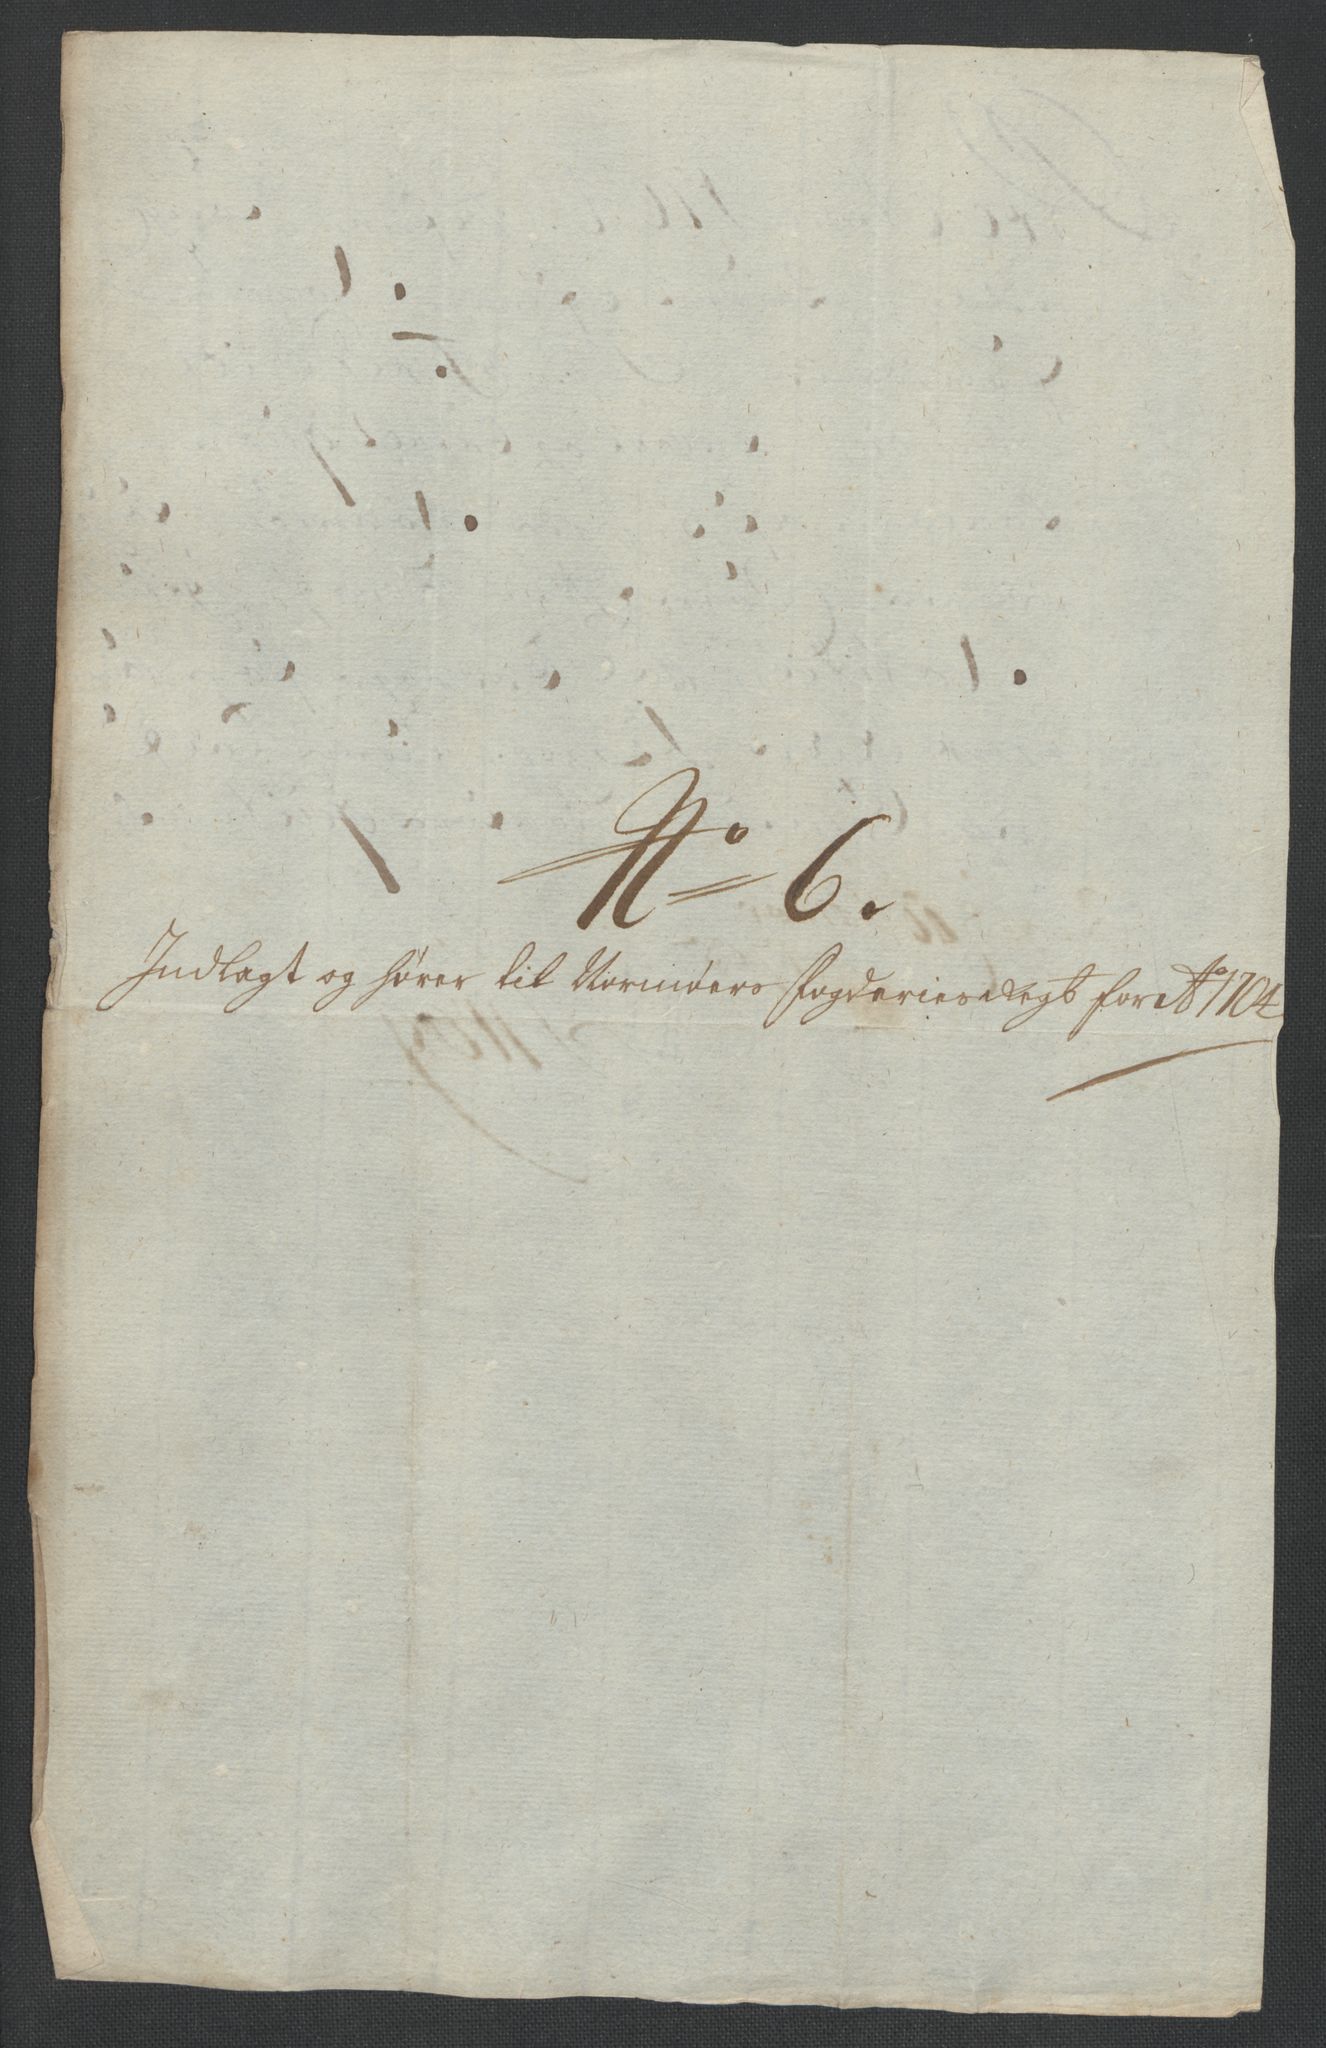 No 6.
Indlagt og hører til Normøers fogderies Regb for Ao 1704